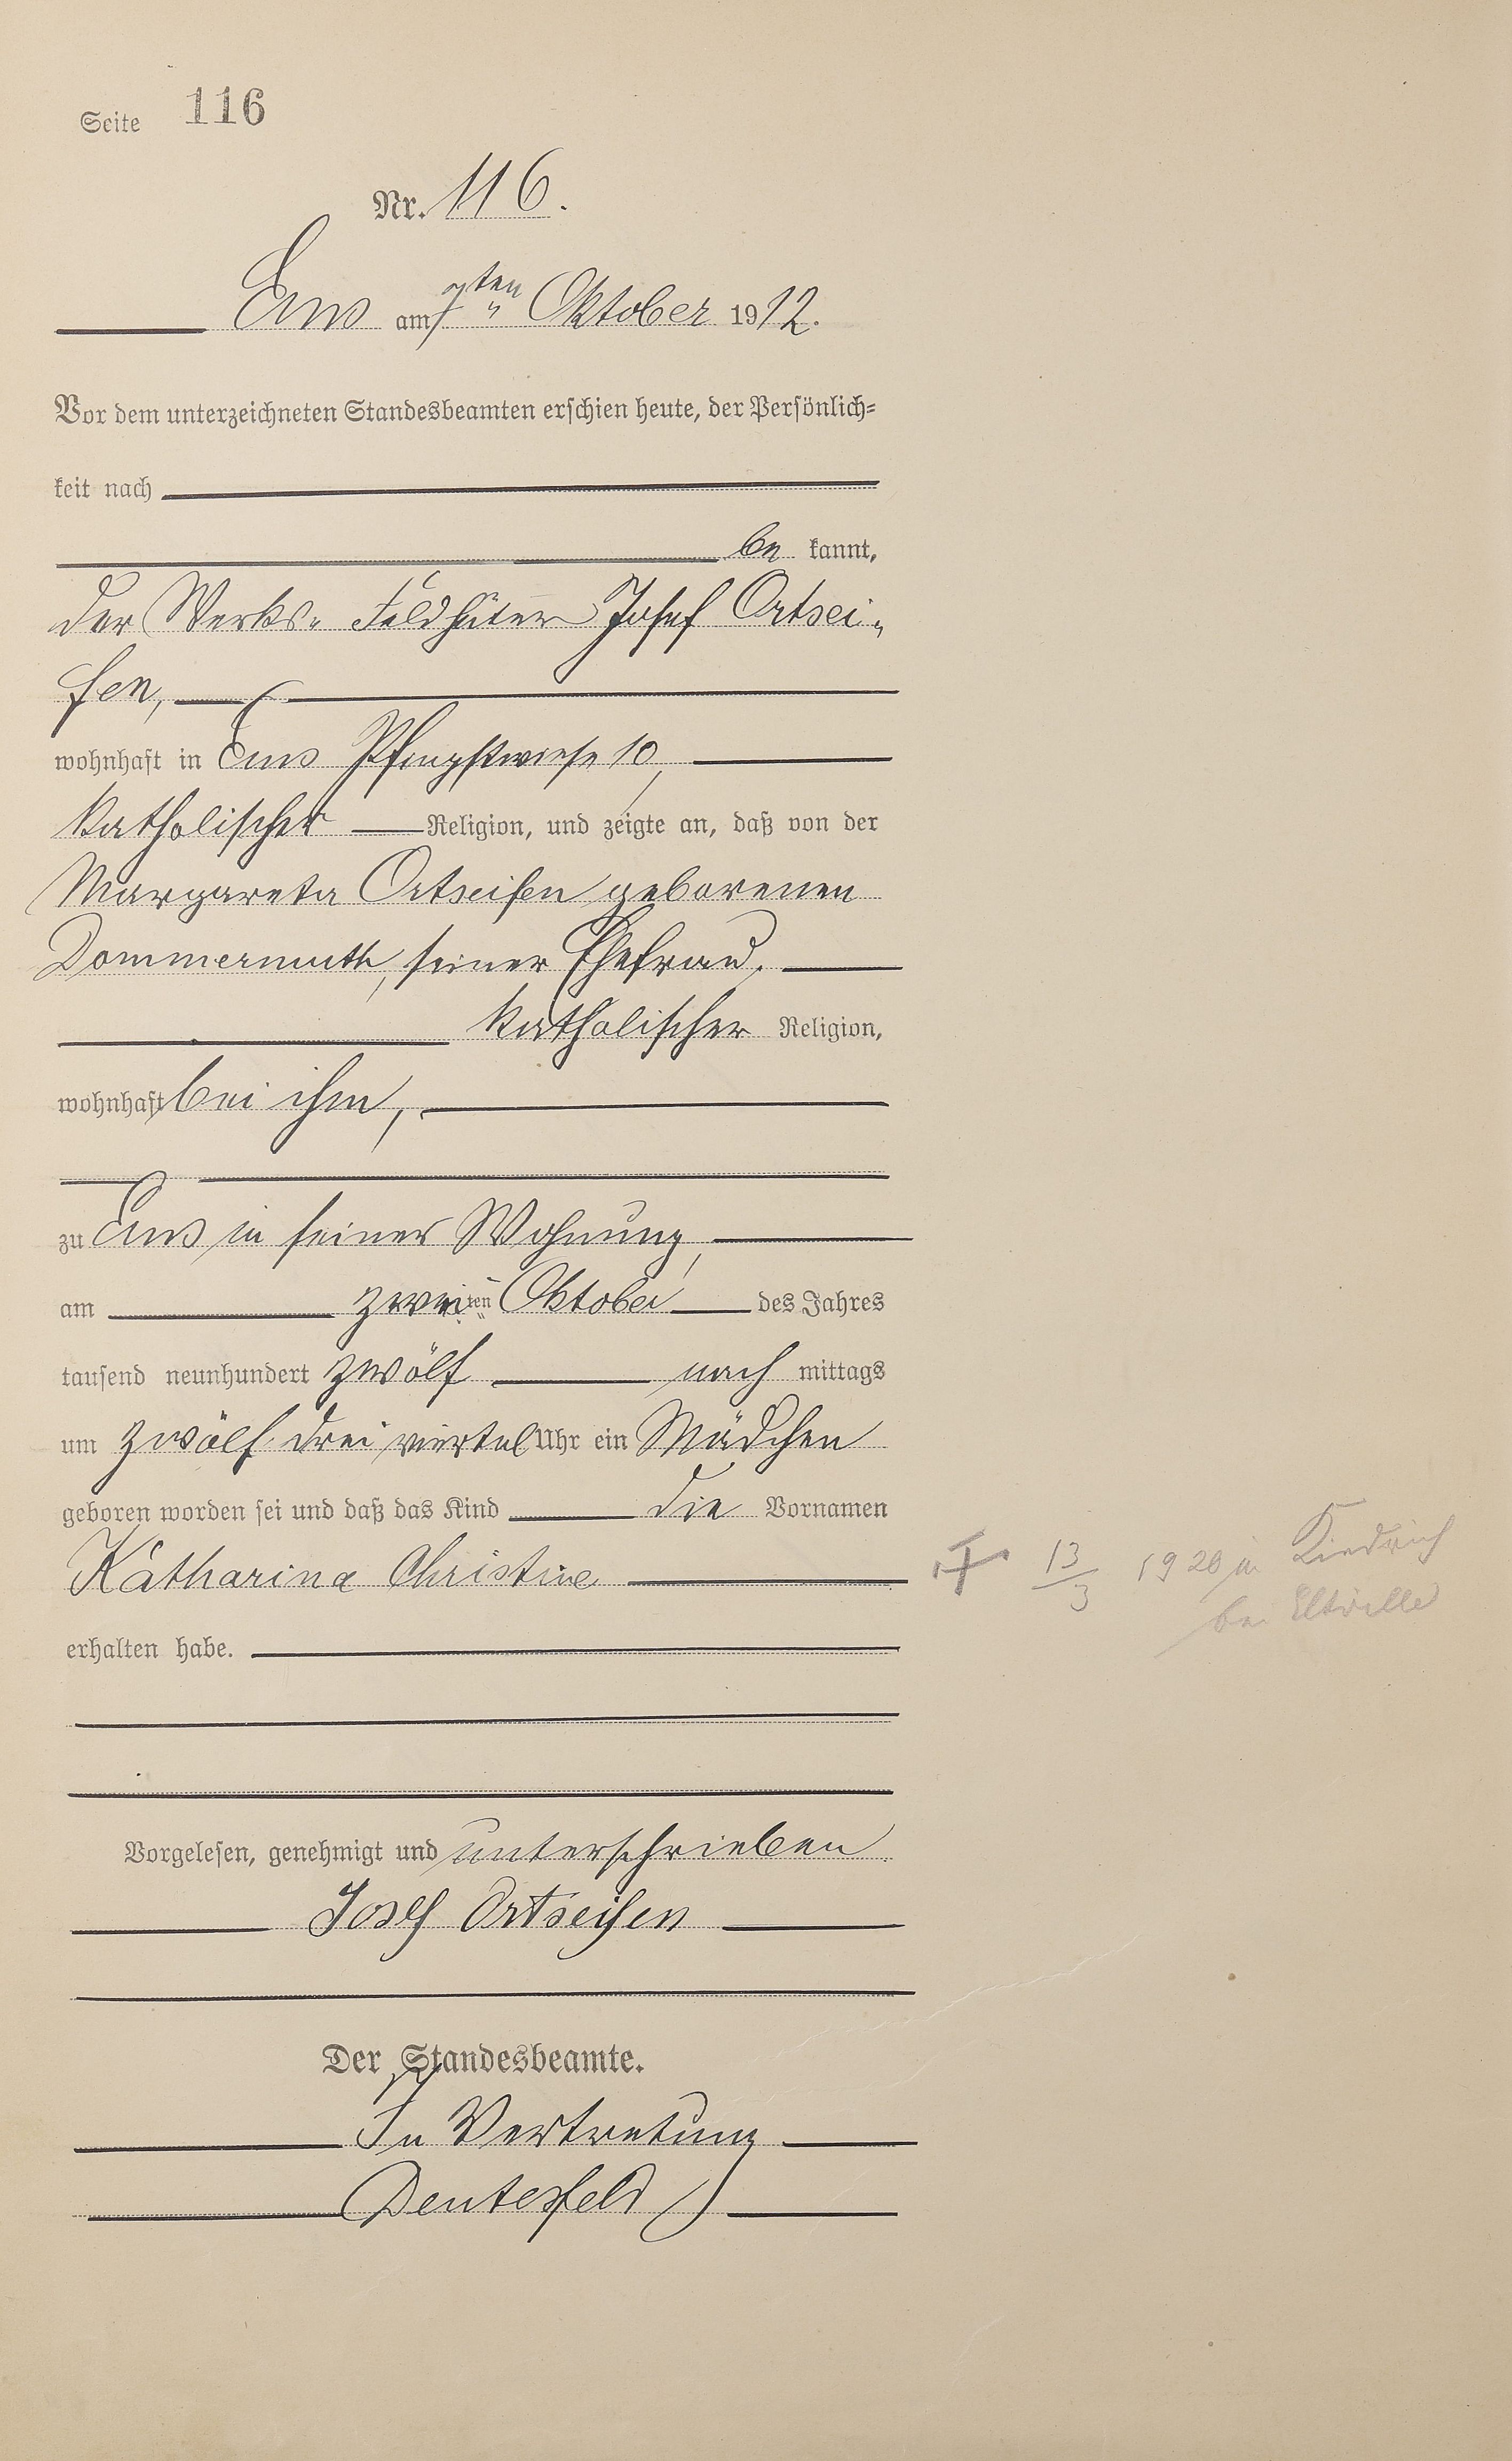 Seite 116
Nr. 116.
Ems am 7ten Oktober 1912.
Vor dem unterzeichneten Standesbeamten erschien heute, der Persönlich=
keit nach
be kannt,
der Werks- Feldhüter Josef Ortsei-
fen,
wohnhaft in Ems Pfingstwiese 10,
katholischer Religion, und zeigte an, daß von der
Margareta Ortseifen geborenen
Dommermuth, seiner Ehefrau,
katholischer Religion,
wohnhaft bei ihm,
zu Ems in seiner Wohnung,
am zweiten Oktober des Jahres
tausend neunhundert zwölf nach mittags
um zwölf drei viertel Uhr ein Mädchen
geboren worden sei und daß das Kind die Vornamen
Katharina Christine
† 13/3 1920 in Kiedrich
bei Eltville
erhalten habe.
Vorgelesen, genehmigt und unterschrieben
Josef Ortseifen
Der Standesbeamte.
In Vertretung
Deutesfeld